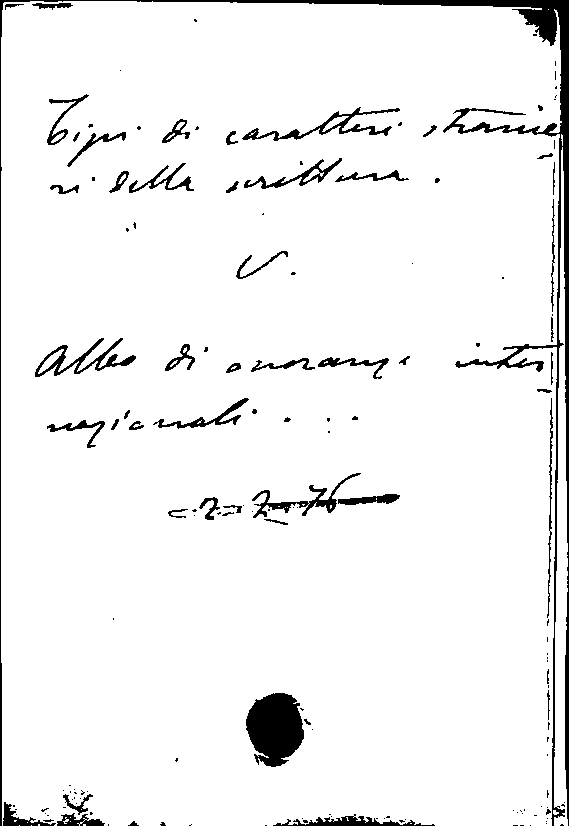 Tipi di caratteri stranie-
ri della scrittura.
V.
Albo di onoranze inter-
nazionali . . .